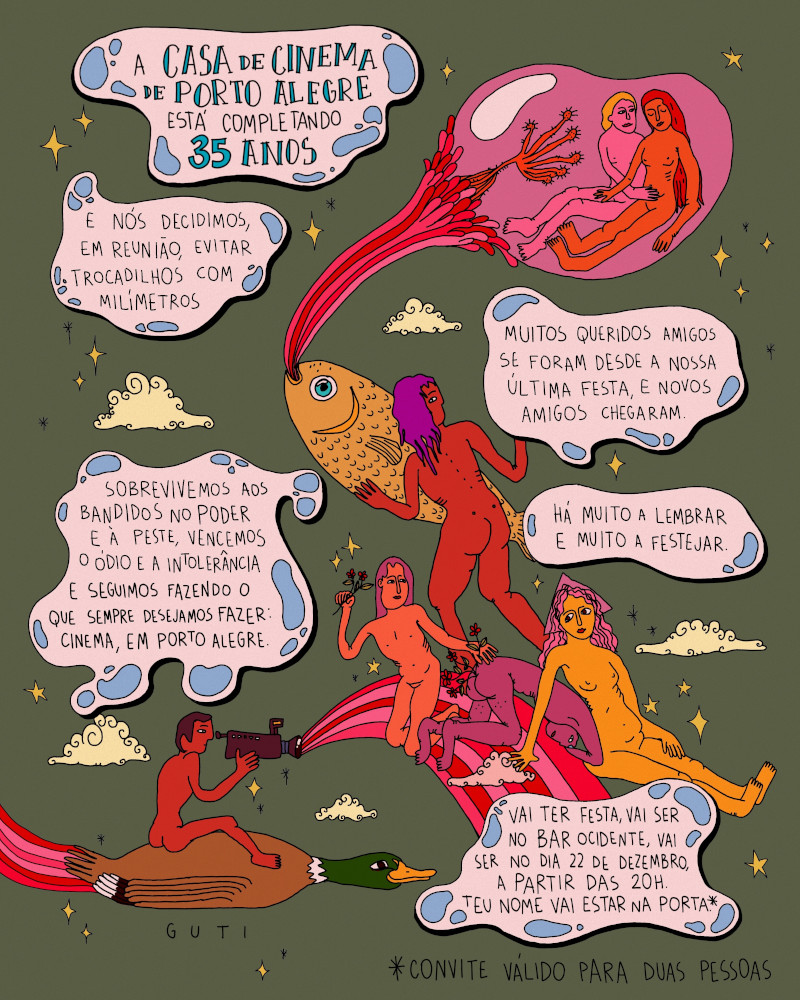 A CASA DE CINEMA
DE PORTO ALEGRE
ESTÁ COMPLETANDO
35 ANOS
E NÓS DECIDIMOS,
EM REUNIÃO, EVITAR
TROCADILHOS COM
MILÍMETROS
MUITOS QUERIDOS AMIGOS
SE FORAM DESDE A NOSSA
ÚLTIMA FESTA, E NOVOS
AMIGOS CHEGARAM.
SOBREVIVEMOS AOS
BANDIDOS NO PODER
E À PESTE, VENCEMOS
O ÓDIO E A INTOLERÂNCIA
E SEGUIMOS FAZENDO O
QUE SEMPRE DESEJAMOS FAZER:
CINEMA, EM PORTO ALEGRE.
HÁ MUITO A LEMBRAR
E MUITO A FESTEJAR.
VAI TER FESTA, VAI SER
NO BAR OCIDENTE, VAI
SER NO DIA 22 DE DEZEMBRO,
A PARTIR DAS 20H.
TEU NOME VAI ESTAR NA PORTA.*
GUTI
*CONVITE VÁLIDO PARA DUAS PESSOAS